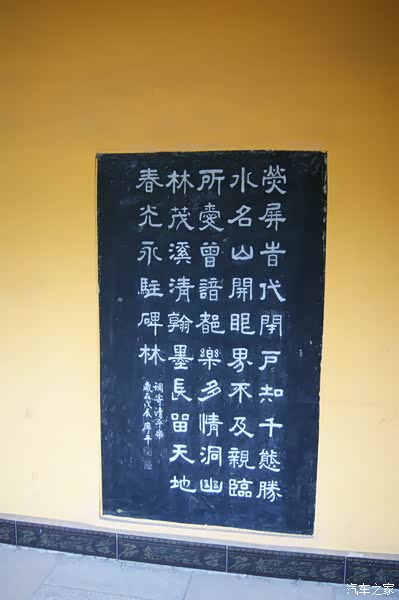 熒屏旹代閉戶知千態勝
水名山開眼界不及親臨
所愛曾諳都樂多情洞幽
林茂溪清翰墨長留天地
春光永駐碑林
調寄清平樂
歲在戊辰
汽车之家